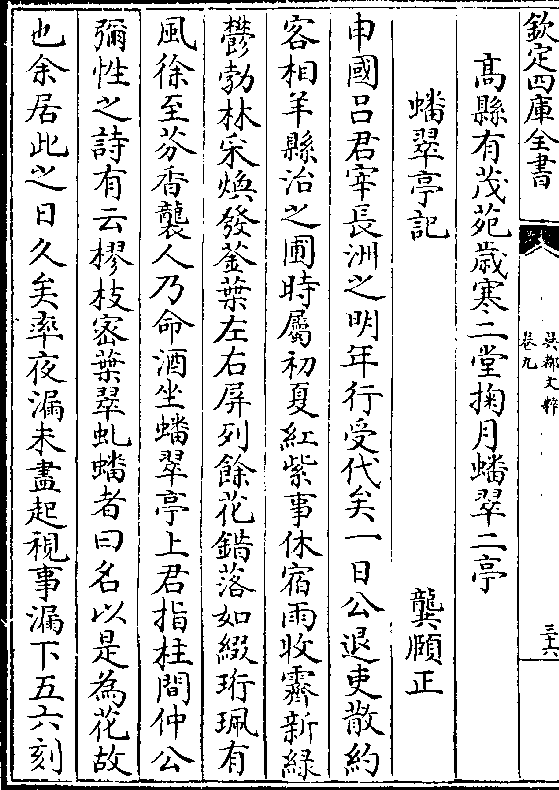 欽定四庫全書
吳都文粹
卷九
三十六
高縣有茂苑歳寒二堂掬月蟠翠二亭
蟠翠亭記
龔頤正
申國吕君宰長洲之明年行受代矣一日公退吏散約
客相羊縣治之圃時屬初夏紅紫事休宿雨收霽新緑
鬱勃林采煥發葉左右屏列餘花錯落如綴珩珮有
風徐至芬香襲人乃命酒坐蟠翠亭上君指柱間仲公
彌性之詩有云樛枝宻葉翠虬蟠者曰名以是為花故
也余居此之日久矣率夜漏未盡起視事漏下五六刻